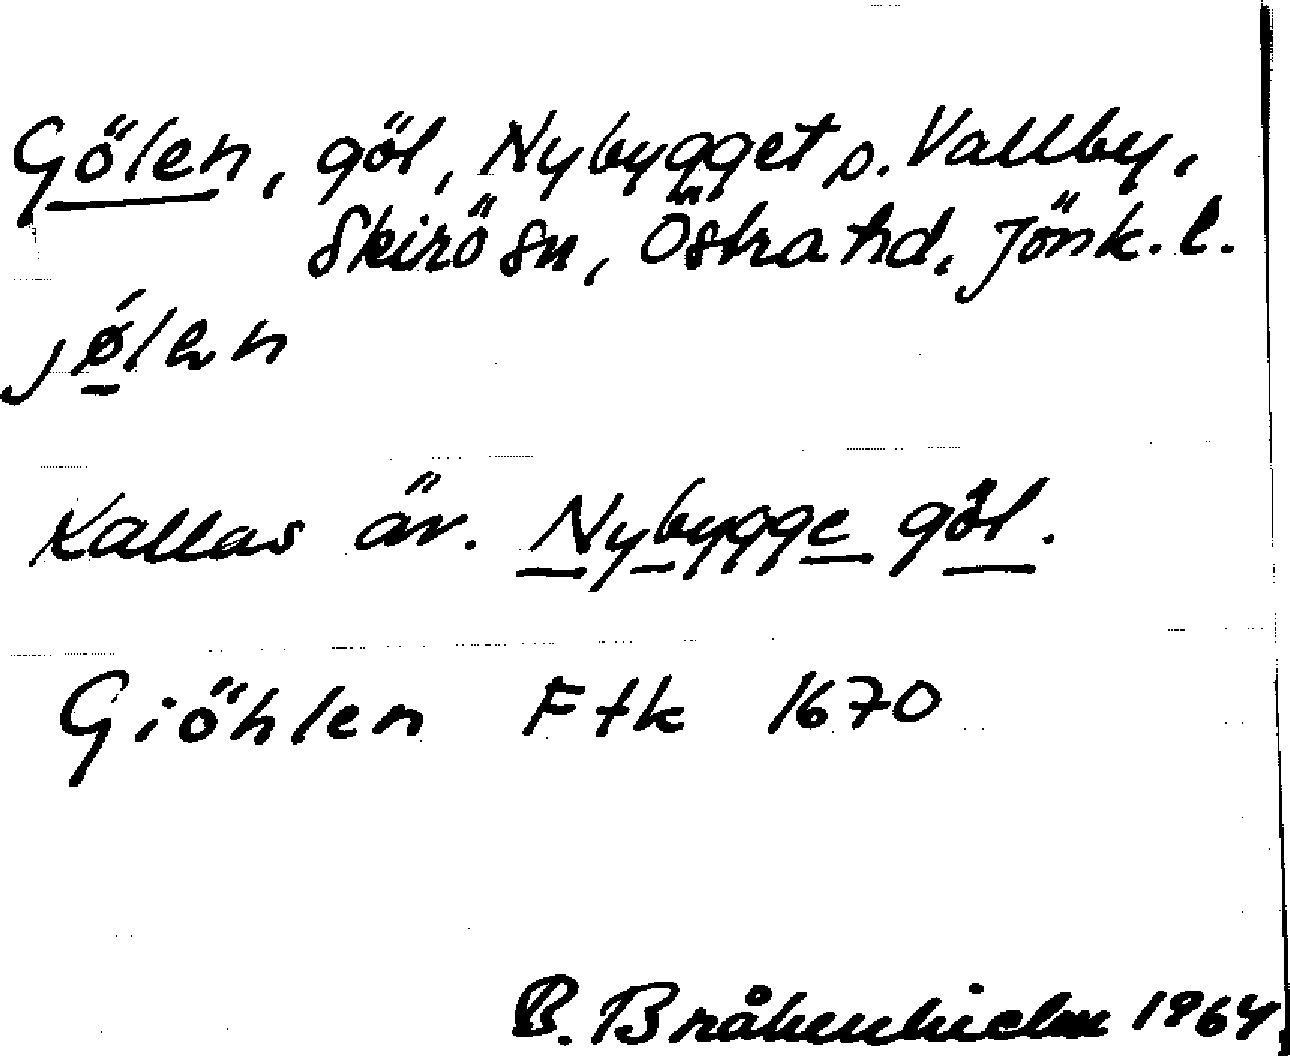 Gölen, göl, Nybygget s. Vallby,
Skirö sn, Östra hd, Jönk. l.
jǿlen
Kallas äv. Nybygge göl.
Giöhlen Ftk 1670
B. Bråkenhielm 1964